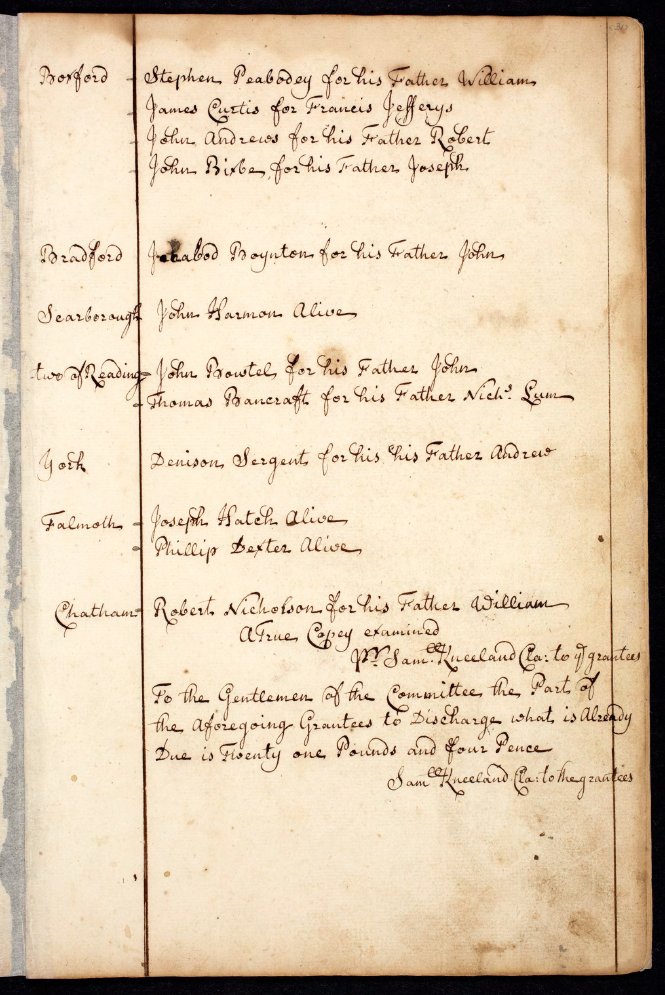 Boxford - Stephen Peabodey for his Father William
- James Curtis for Francis Jefferys
- John Andrews for his Father Robert
- John Bixbe for his Father Joseph
Bradford Ichabod Boynton for his Father John
Scarborough John Harmon Alive
two of Reading - John Bowtel for his Father John
- Thomas Bancraft for his Father Nichs. Lum
York Denison Sergent for his his Father Andrew
Falmoth - Joseph Hatch Alive
- Phillip Dexter Alive
Chatham - Robert Nicholson for his Father William
A True Copey examined
Pr. Samll. Kneeland Cla: to ye grantees
To the Gentlemen of the Committee the Part of
the Aforegoing Grantees to Discharge what is Already
Due is Twenty one Pounds and four Pence
Samll Kneeland Cla: to the grantees